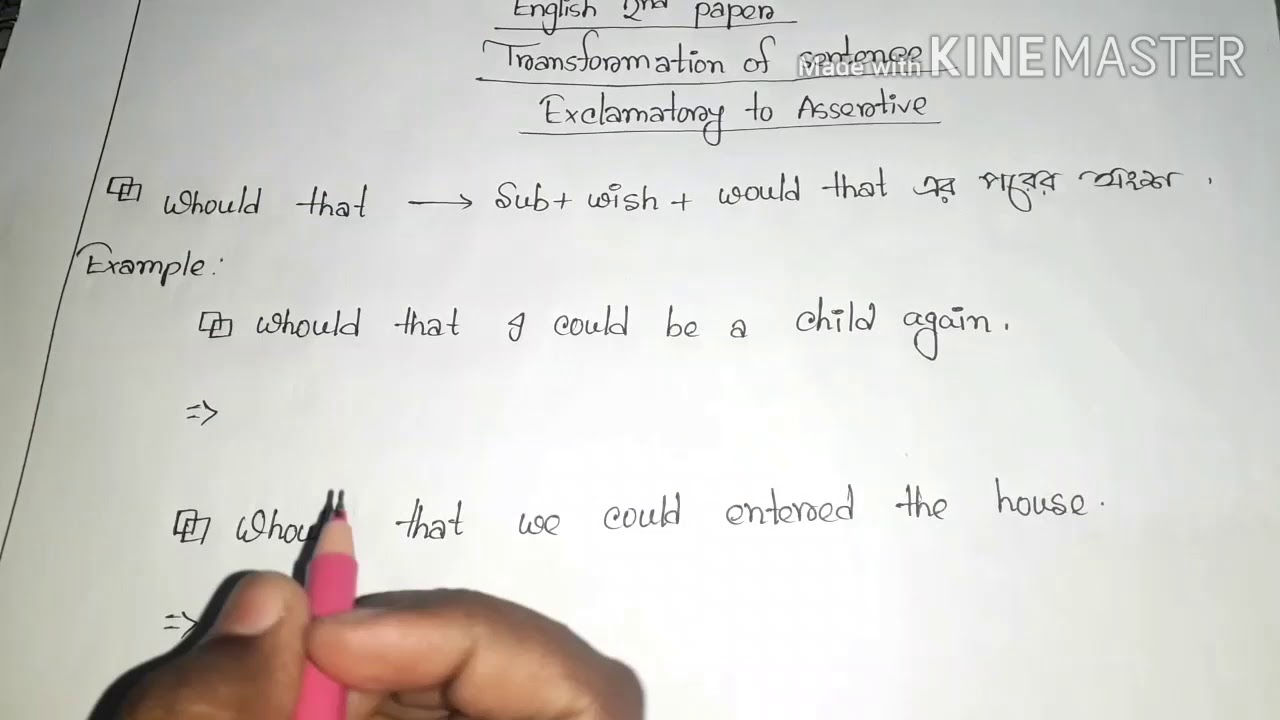 English 2nd paper
Transformation of sentence
Made with KINEMASTER
Exclamatory to Assertive
Whould that → Sub + wish + would that এর পরের অংশ .
Example :
Whould that I could be a child again .
⇒
Whould that we could entered the house .
⇒